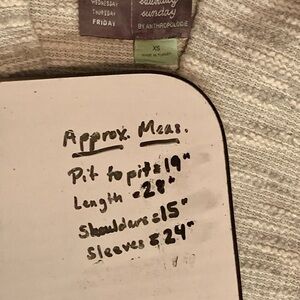 WEDNESDAY
THURSDAY
FRIDAY
saturday
sunday
BY ANTHROPOLOGIE
XS
Approx. Meas.
Pit to pit = 19"
Length = 28"
Shoulders = 15"
Sleeves = 24"